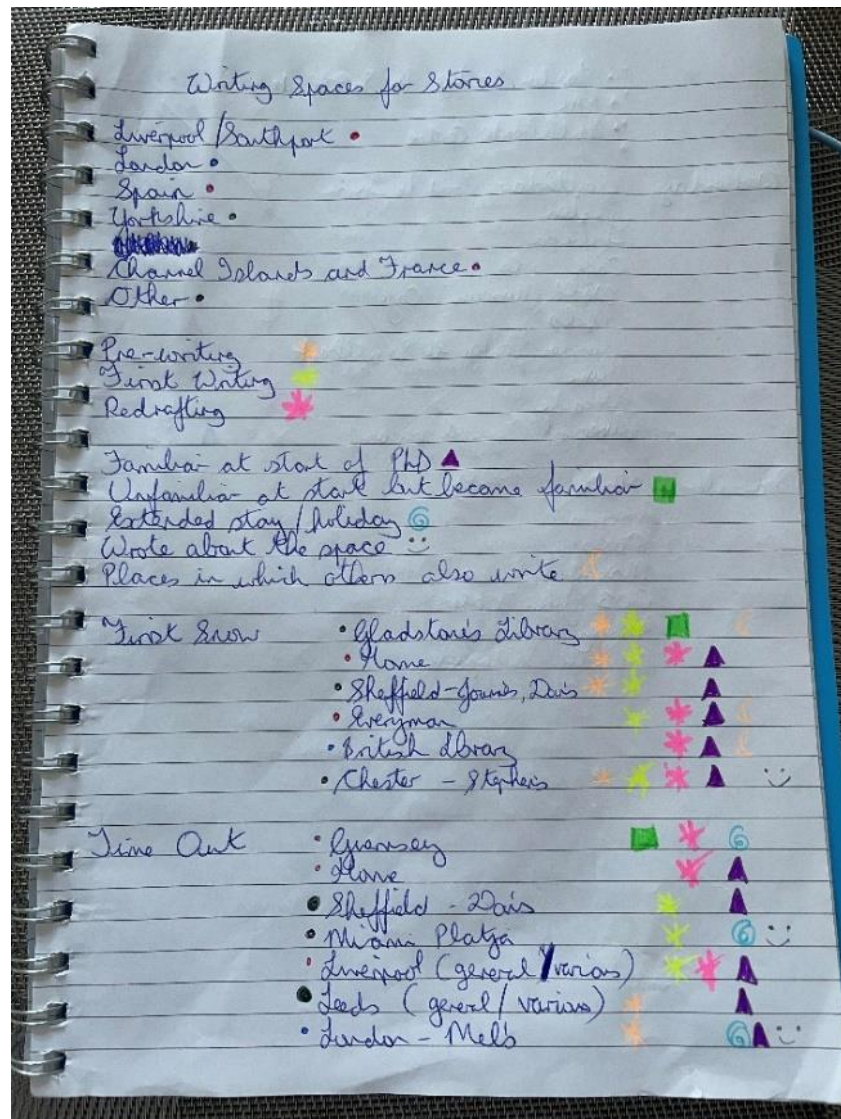 Writing Spaces for Stories
Liverpool/Southport
London
Spain
Yorkshire
Channel Islands and France
Other
Pre-writing
First Writing
Redrafting
Familiar at start of PhD
Unfamiliar at start but became familiar
Extended stay/holiday
Wrote about the space
Places in which others also write
First Snow
Gladstone's Library
Home
Sheffield - Joann's, Dai's
Everyman
British Library
Chester - Stephen's
Time Out
Guernsey
Home
Sheffield - Dai's
Miami Platja
Liverpool (general/various)
Leeds (general/various)
London - Mel's